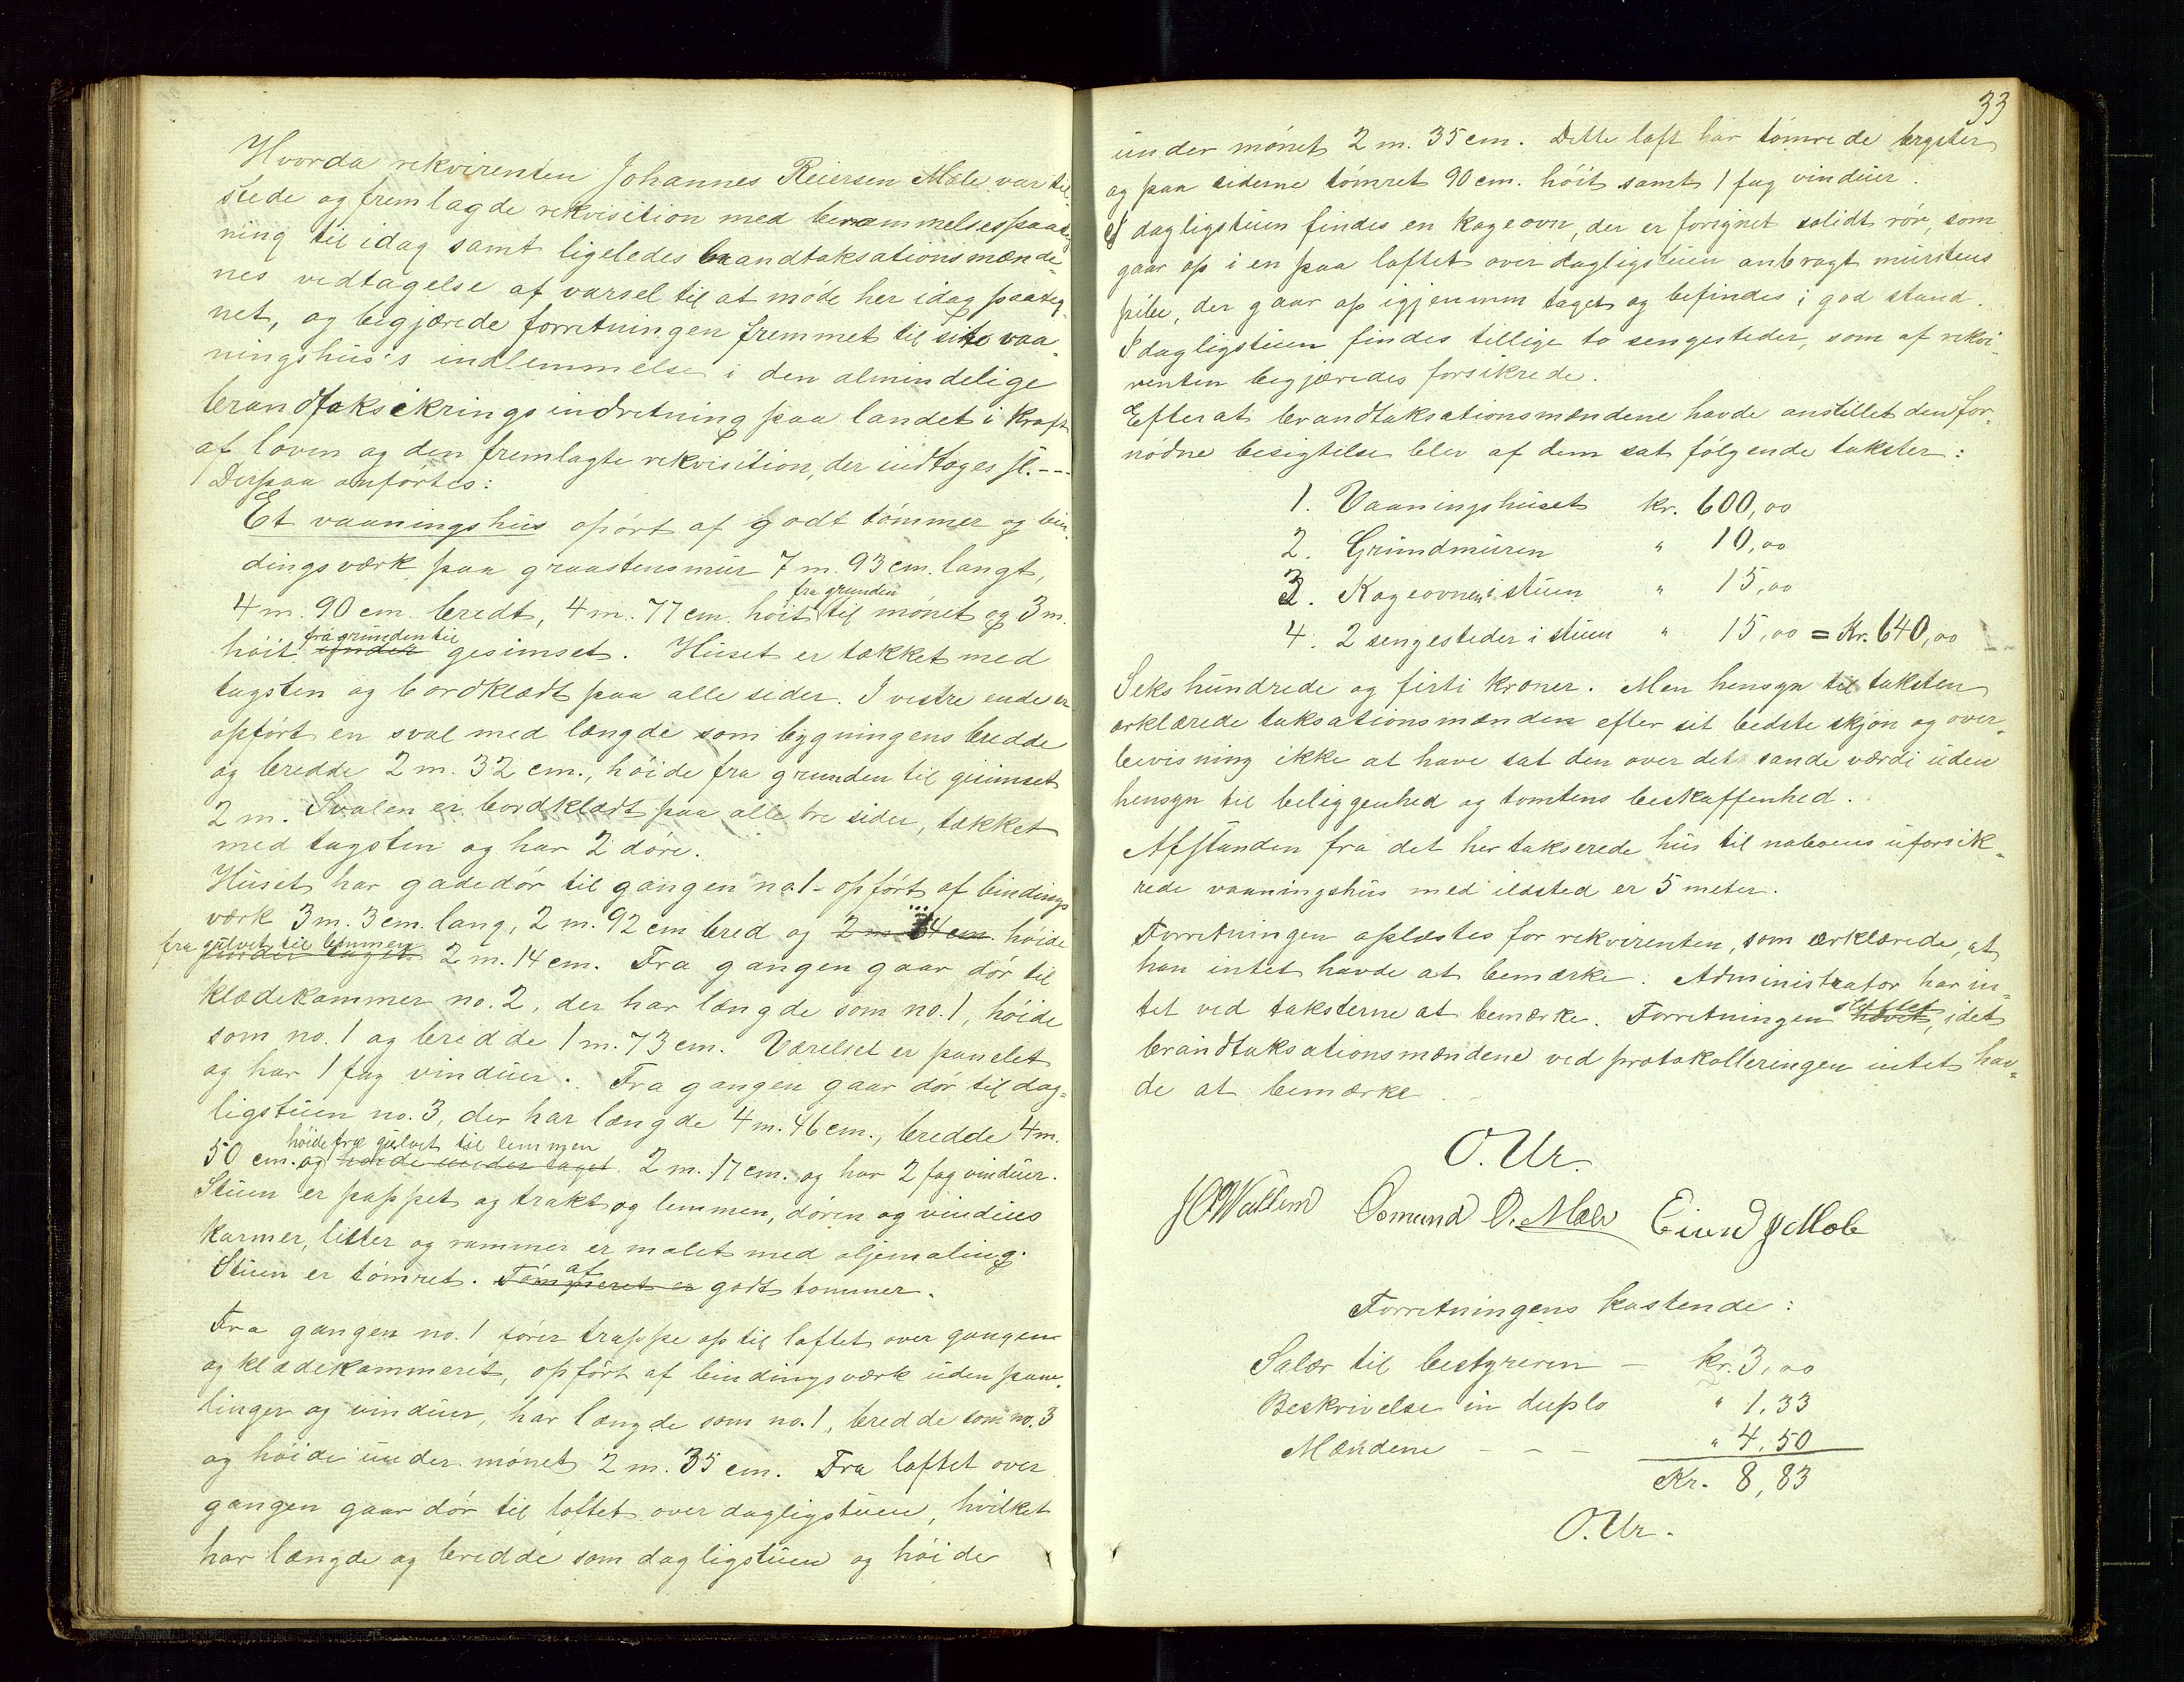 Hvorda rekvirenten Johannes Reiersen Mæle var til
stede og fremlagde rekvisition med berammelsespaateg
ning til idag samt ligeledes brandtaksationsmænde-
nes vedtagelse af varsel til at møde her idag paateg-
net, og begjærede forretningen fremmet til sit vaa-
ningshus's indlemmelse i den almindelige
brandforsikringsindretning paa landet i kraft
af loven og den fremlagte rekvisition, der indtoges sl.---
Derpaa anførtes:
Et vaaningshus opört af godt tömmer og bin-
dingsværk paa graastensmur 7 m. 93 cm. langt,
fra grunden
4 m. 90 cm. bredt, 4 m. 77 cm. höit til mönet og 3 m.
fra grunden til
höit under gesimset. Huset er tækket med
tagsten og bordklædt paa alle sider. I vestre ende er
opfört en sval med længde som bygningens bredde
og bredde 2 m. 32 cm., höide fra grunden til gesimset
2 m. Svalen er bordklædt paa alle tre sider, tækket
med tagsten og har 2 döre.
Huset har gadedör til gangen no. 1 - opfört af bindings
værk 3 m. 3 cm. lang, 2 m. 92 cm bred og 2 m 14 cm. höide
fra gulvet til lemmen
under taget 2 m. 14 cm. Fra gangen gaar dör til
klædekammer no. 2, der har længde som no. 1, höide
som no. 1 og bredde 1 m. 73 cm. Værelset er panelet
og har 1 fag vinduer. Fra gangen gaar dör til dag-
ligstuen no. 3, der har længde 4 m. 46 cm., bredde 4 m.
höide fra gulvet til lemmen
50 cm. og höide under taget 2 m. 17 cm. og har 2 fag vinduer.
Stuen er pappet og trakt og lemmen, dören og vindues
karmer, lister og rammer er malet med oljemaling.
af
Stuen er tömret. Tömmeret er godt tömmer.
Fra gangen no. 1 förer trappe op til loftet over gangen
og klædekammeret, opfört af bindingsværk uden pane-
linger og vinduer, har længde som no. 1, bredde som no. 3
og höide under mönet 2 m. 35 cm. Fra loftet over
gangen gaar dör til loftet over dagligstuen, hvilket
har længde og bredde som dagligstuen og höide
33
under mönet 2 m. 35 cm. Dette loft har tömrede brystер
og paa siderne tömret 90 cm. höit samt 1 fag vinduer.
I dagligstuen findes en kogeovn, der er forsynet solidt rör, som
gaar op i en paa loftet over dagligstuen anbragt murstens
pibe, der gaar op igjennem taget og befindes i god stand.
I dagligstuen findes tillige to sengesteder, som af rekvi-
renten begjæredes forsikrede.
Efterat brandtaksationsmændene havde anstillet den for-
nödne besigtelse blev af dem sat fölgende takster:
1. Vaaningshuset kr. 600,00
2. Grundmuren " 10,00
3. Kogeovnen i stuen " 15,00
4. 2 sengesteder i stuen " 15,00 = Kr. 640,00
Sekshundrede og firti kroner. Men hensyn til taksten
erklærede taksationsmænden efter sit bedste skjön og over-
bevisning ikke at have sat den over det sande værdi uden
hensyn til beliggenhed og tomtens beskaffenhed.
Afstanden fra det her takserede hus til naboens uforsik-
rede vaaningshus med ildsted er 5 meter.
Forretningen oplæstes for rekvirenten, som erklærede, at
han intet havde at bemærke. Administrator har in-
tet ved taksterne at bemærke. Forretningen
sluttet
hævet, idet
brandtaksationsmændene ved protokolleringen intet hav-
de at bemærke.
O. Ur.
Osmund O. Mæle
Forretningens kostende:
Salær til bestyreren - kr. 3,00
Beskrivelse in duplo " 1,33
Mændene - - - " 4,50
Kr. 8,83
O. Ur.